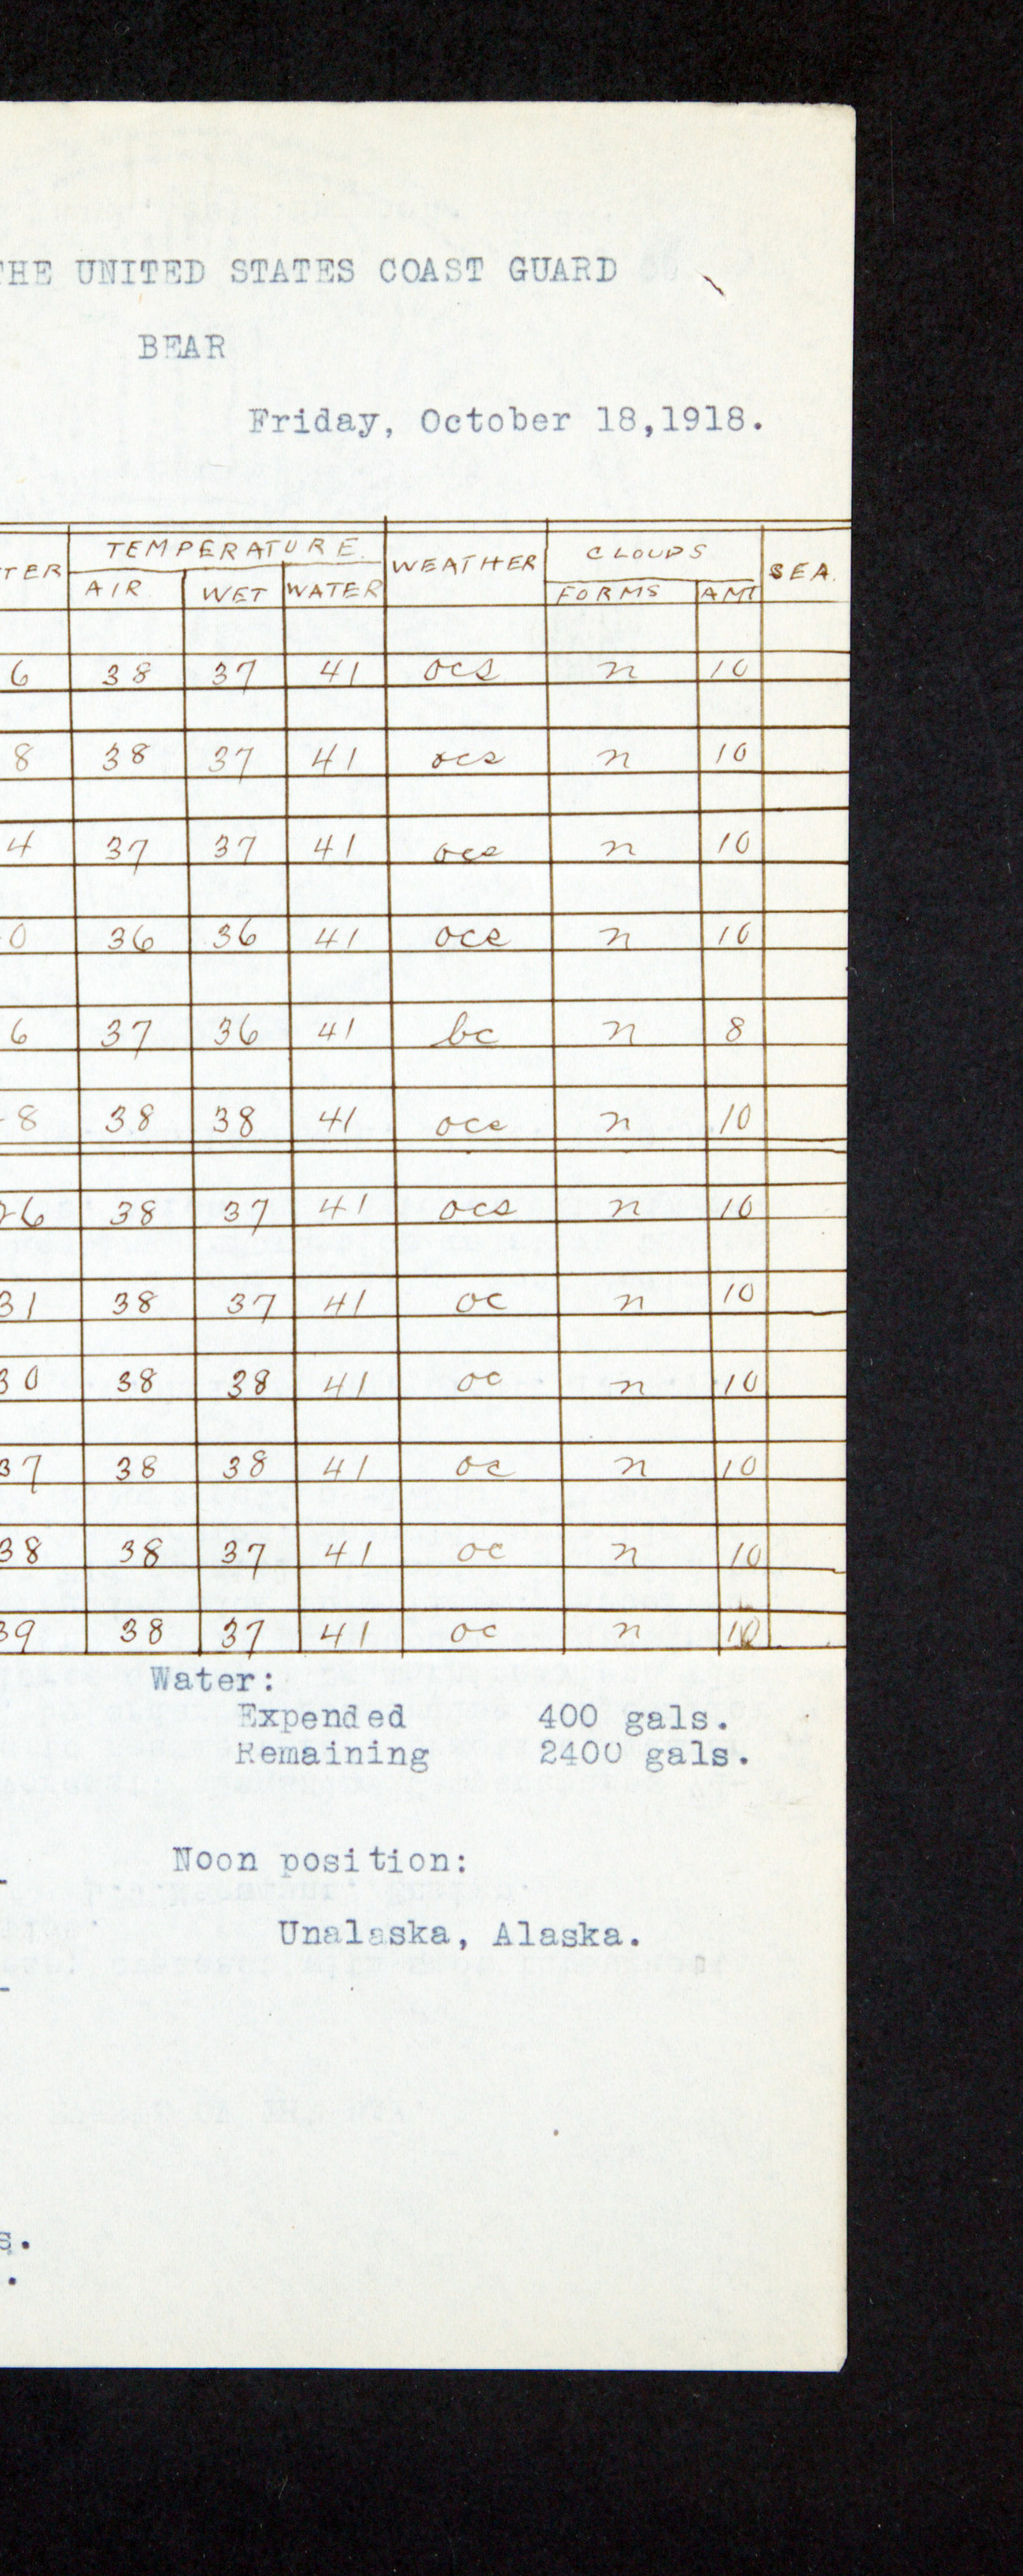 THE UNITED STATES COAST GUARD
BEAR
Friday, October 18,1918.
TEMPERATURE. WEATHER CLOUDS SEA.
TER AIR WET WATER FORMS AMT
6 38 37 41 ocs n 10
8 38 37 41 ocs n 10
4 37 37 41 ocs n 10
0 36 36 41 ocs n 10
6 37 36 41 bc n 8
8 38 38 41 ocs n 10
26 38 37 41 ocs n 10
31 38 37 41 oc n 10
30 38 38 41 oc n 10
37 38 38 41 oc n 10
38 38 37 41 oc n 10
39 38 37 41 oc n 10
Water:
Expended 400 gals.
Remaining 2400 gals.
Noon position:
Unalaska, Alaska.
s.